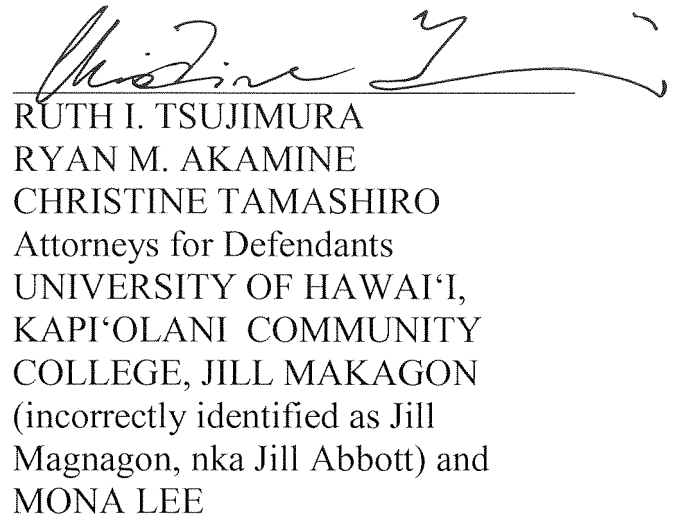 Christine T
RUTH I. TSUJIMURA
RYAN M. AKAMINE
CHRISTINE TAMASHIRO
Attorneys for Defendants
UNIVERSITY OF HAWAI‘I,
KAPI‘OLANI COMMUNITY
COLLEGE, JILL MAKAGON
(incorrectly identified as Jill
Magnagon, nka Jill Abbott) and
MONA LEE